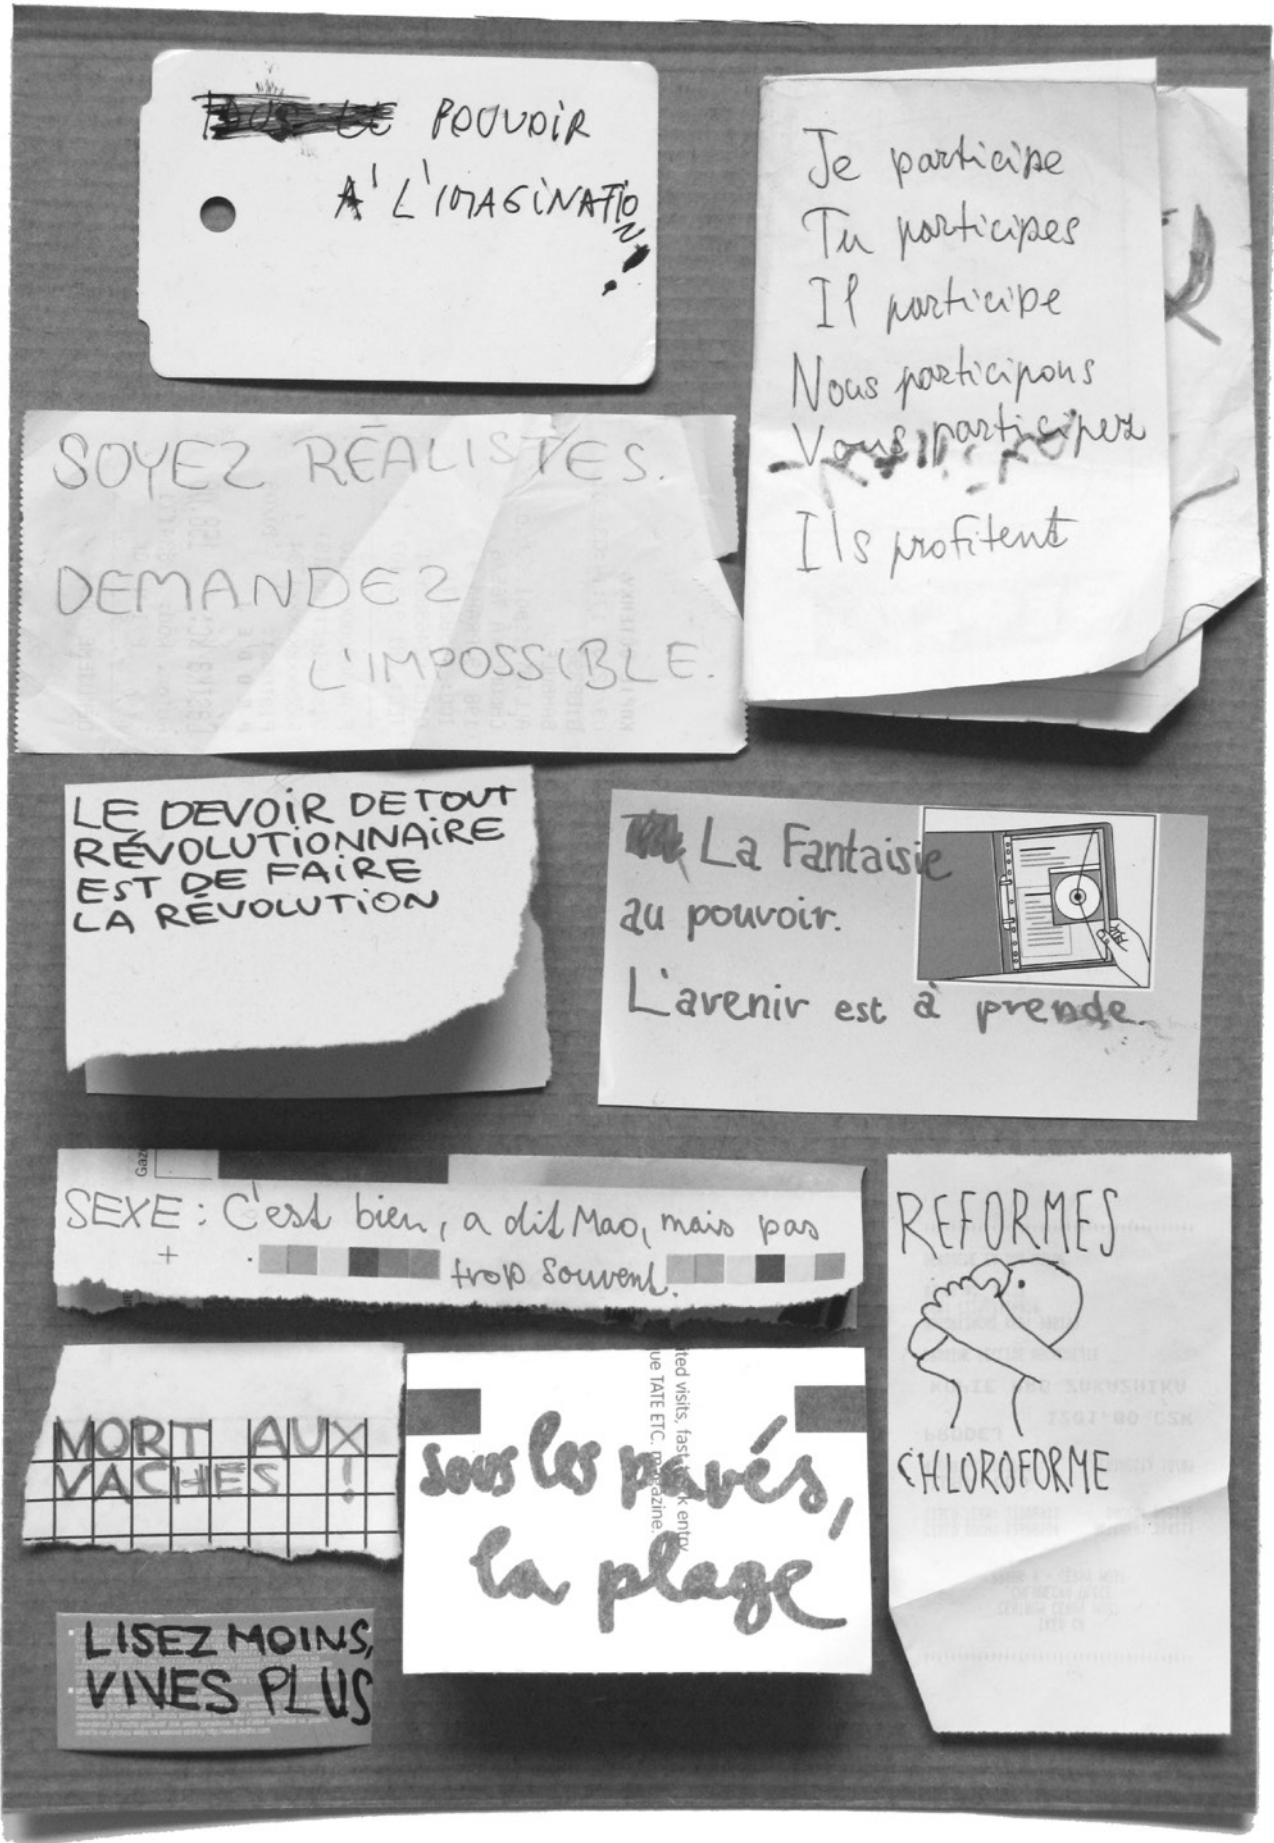 POUVOIR
A L'IMAGINATION!
Je participe
Tu participes
Il participe
Nous participons
Vous participez
Ils profitent
SOYEZ RÉALISTES.
DEMANDEZ
L'IMPOSSIBLE.
LE DEVOIR DE TOUT
RÉVOLUTIONNAIRE
EST DE FAIRE
LA RÉVOLUTION
La Fantaisie
au pouvoir.
L'avenir est à prende.
Gaz
SEXE : C'est bien, a dit Mao, mais pas
trop souvent.
REFORMES
CHLOROFORME
MORT AUX
VACHES !
ited visits, fast entry
ue TATE ETC. magazine.
sous les pavés,
la plage
LISEZ MOINS,
VIVES PLUS